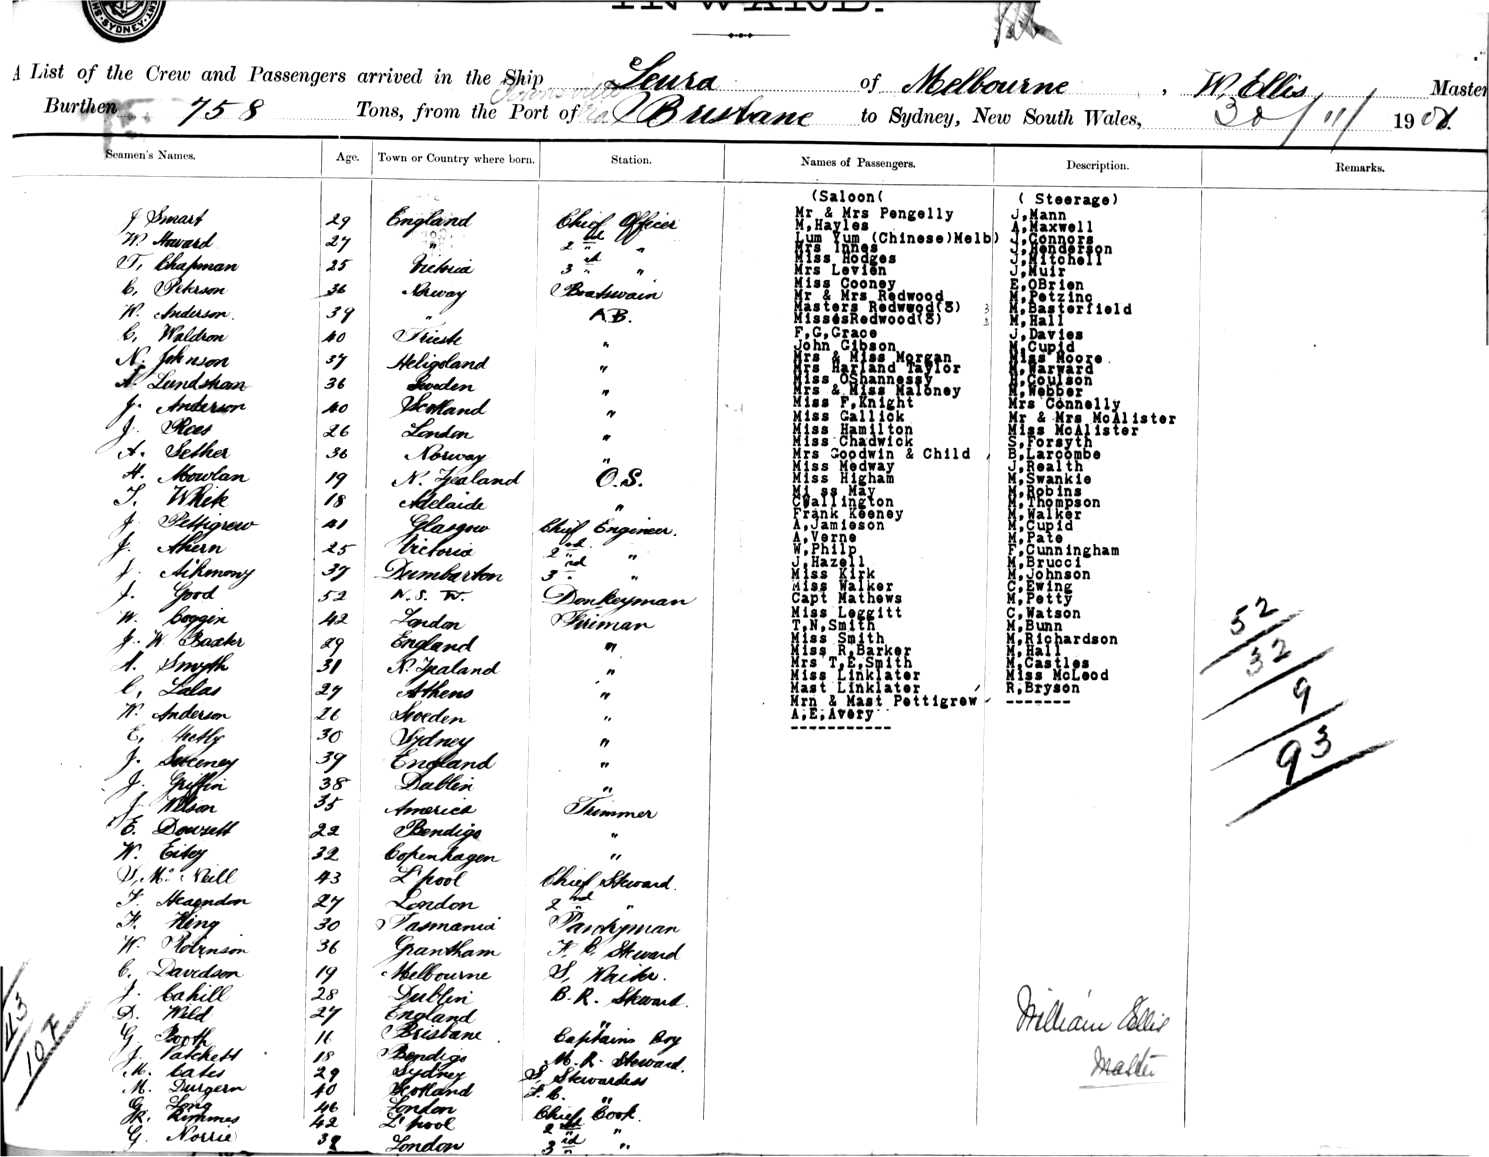 SYDNEY
INWARD.
A List of the Crew and Passengers arrived in the Ship Leura of Melbourne, W Ellis Master
Burthen 758 Tons, from the Port of Brisbane to Sydney, New South Wales, 30/11/1901.
Seamen's Names. Age. Town or Country where born. Station. Names of Passengers. Description. Remarks.
J Smart 29 England Chief Officer
W. Howard 27 " 2nd "
T. Chapman 25 Victoria 3rd "
C. Peterson 36 Norway Boatswain
W. Anderson 39 " A.B.
C. Waldron 40 Trieste "
N. Johnson 37 Heligoland "
A. Lundshan 36 Sweden "
J. Anderson 40 Scotland "
J. Rees 26 London "
A. Sether 36 Norway "
H. Mowlan 19 N. Zealand O.S.
T. White 18 Adelaide "
J. Pettigrew 41 Glasgow Chief Engineer.
J. Ahern 25 Victoria 2nd "
J. 37 Dumbarton 3rd "
J. Good 52 N.S.W. Donkeyman
W. Coggin 42 London Fireman
J. W. Baxter 29 England "
A. Smyth 31 N. Zealand "
C. Lalas 27 Athens "
W. Anderson 26 Sweden "
E. 30 Sydney "
J. Sweeney 39 England "
J. Griffin 38 Dublin "
J. Wilson 35 America Trimmer
E. Dowsett 22 Bendigo "
W. 32 Copenhagen "
McNeill 43 L'pool Chief Steward.
F. 27 London 2nd "
F. King 30 Tasmania Pantryman
W. Robinson 36 Grantham F. C. Steward
C. Davidson 19 Melbourne S. Waiter.
J. Cahill 28 Dublin B. R. Steward.
D. Wild 27 England "
G. Booth 16 Brisbane Captains Boy
J. Patchett 18 Bendigo M. R. Steward.
M. Cates 29 Sydney S. Stewardess
M. Durgern 40 Scotland F. C. "
G. Long 46 London Chief Cook.
R. Rimmes 42 L'pool 2nd "
G. Norrie 38 London 3rd "
(Saloon(
Mr & Mrs Pengelly
M,Hayles
Lum Yum (Chinese)Melb)
Mrs Innes
Miss Hodges
Mrs Levien
Miss Cooney
Mr & Mrs Redwood
Masters Redwood(3) 3
MissesRedwood(3) 3
F,G,Grace
John Gibson
Mrs & Miss Morgan
Mrs Harland Taylor
Miss OShannessy
Mrs & Miss Maloney
Miss F,Knight
Miss Gallick
Miss Hamilton
Miss Chadwick
Mrs Goodwin & Child
Miss Medway
Miss Higham
Mi ss May
CWallington
Frank Keeney
A,Jamieson
A,Verne
W,Philp
J,Hazell
Miss Kirk
Miss Walker
Capt Mathews
Miss Leggitt
T,N,Smith
Miss Smith
Miss R,Barker
Mrs T,E,Smith
Miss Linklater
Mast Linklater
Mrn & Mast Pettigrew
A,E,Avery
-----------
( Steerage)
J,Mann
A,Maxwell
J,Connors
J,Henderson
J,Mitchell
J,Muir
E,OBrien
M,Petzinc
M,Basterfield
M,Hall
J,Davies
M,Cupid
Miss Moore
M,Warward
H,Coulson
M,Webber
Mrs Connelly
Mr & Mrs McAlister
Miss McAlister
S,Forsyth
B,Larcombe
J,Realth
M,Swankie
M,Robins
M,Thompson
M,Walker
M,Cupid
M,Pate
F,Cunningham
M,Brucci
M,Johnson
C,Ewing
M,Petty
C,Watson
M,Bunn
M,Richardson
M,Hall
M,Castles
Miss McLeod
R,Bryson
-------
52
32
9
93
43
107
William Ellis
Master